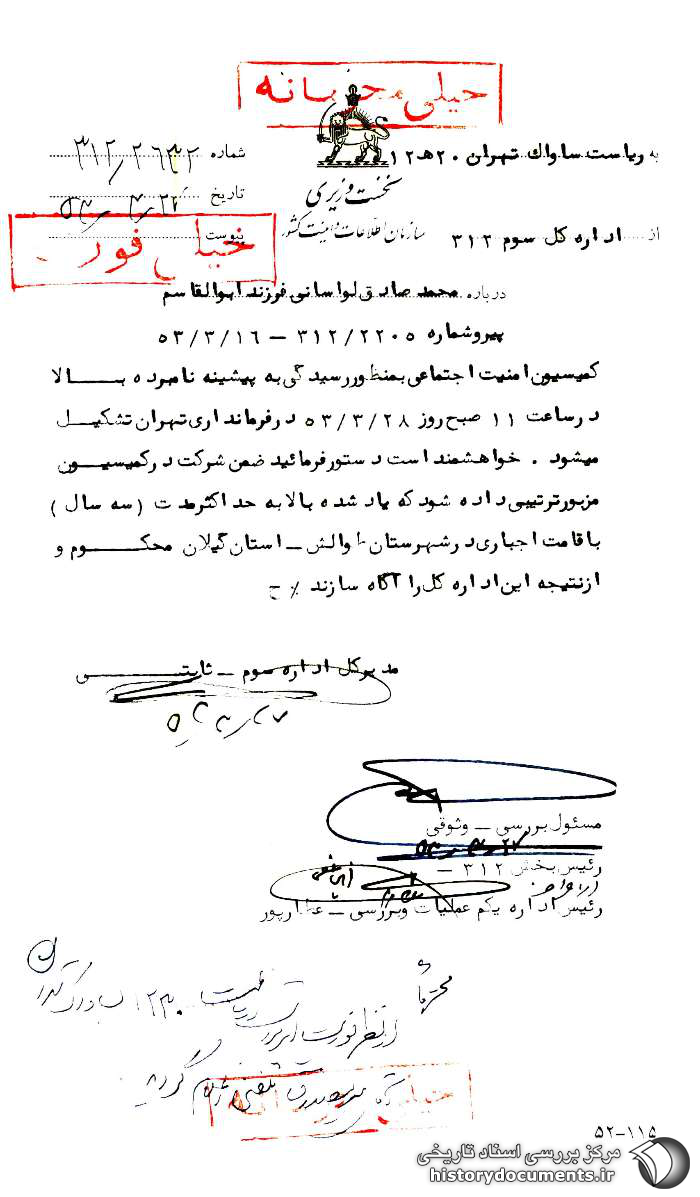 خیلی محرمانه
به ریاست ساواک تهران ۲۰ ﻫ ۱۲
شماره ۳۱۲/۲۶۴۲
نخست وزیری
تاریخ
سازمان اطلاعات و امنیت کشور
از اداره کل سوم ۳۱۲
پیوست
خیلی فوری
درباره محمد صادق لواسانی فرزند ابوالقاسم
پیرو شماره ۳۱۲/۲۲۰۵ – ۵۳/۳/۱۶
کمیسیون امنیت اجتماعی بمنظور رسیدگی به پیشینه نامبرده بالا
در ساعت ۱۱ صبح روز ۵۳/۳/۲۸ در فرمانداری تهران تشکیل
میشود . خواهشمند است دستور فرمائید ضمن شرکت در کمیسیون
مزبور ترتیبی داده شود که یاد شده بالا به حداکثر مدت (سه سال)
باقامت اجباری در شهرستان طوالش – استان گیلان محکوم و
از نتیجه این اداره کل را آگاه سازند ٪ ح
مدیرکل اداره سوم – ثابتی
مسئول بررسی – وثوقی
رئیس بخش ۳۱۲ –
رئیس اداره یکم عملیات و بررسی – عطارپور
محترماً
خیلی
۵۲-۱۱۵
مرکز بررسی اسناد تاریخی
historydocuments.ir